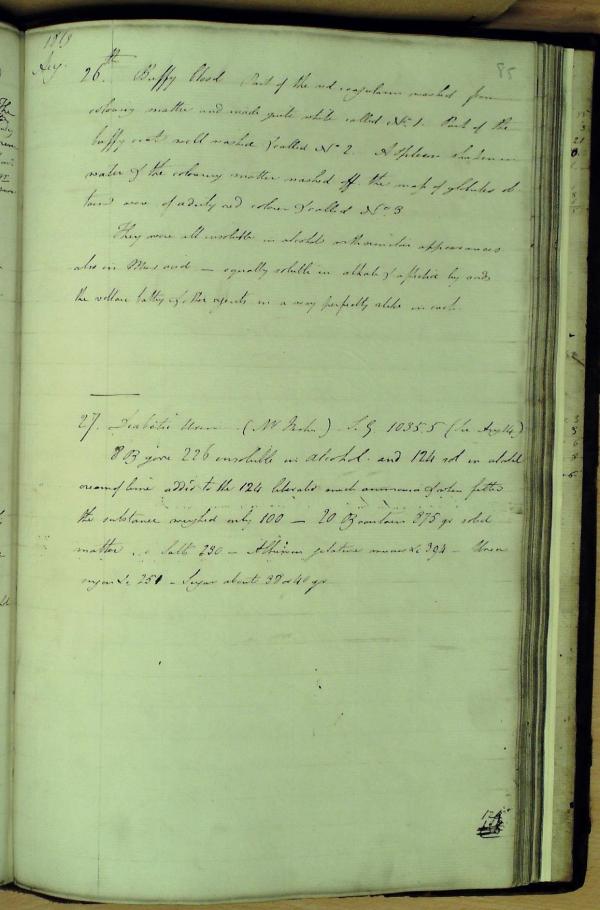 85
Aug.
26th Buffy blood Part of the red coagulum washed from
colouring matter and made quite white called No 1. Part of the
buffy coat well washed & called No 2. A spleen shaken in
water & the colouring matter washed off the map of globules ob-
tained were of a dirty red colour & called No 3
They were all insoluble in alcohol with similar appearances
also in Mur acid — equally soluble in alkali & affected by acids
the voltaic battery & other agents in a way perfectly alike in each.
27. Diabetic Urine (Mr) S.G. 1035.5 (See Aug 14)
8 oz gave 226 insoluble in alcohol. and 124 sol in alcohol
cream of lime added to the 124 liberated much ammonia & when filtered
the substance weighed only 100 — 20 oz contain 875 gr solid
matter Salts 230 — Albumen gelatine mucus &c 394 — Urea
sugar &c 251 — Sugar about 38 or 40 gr